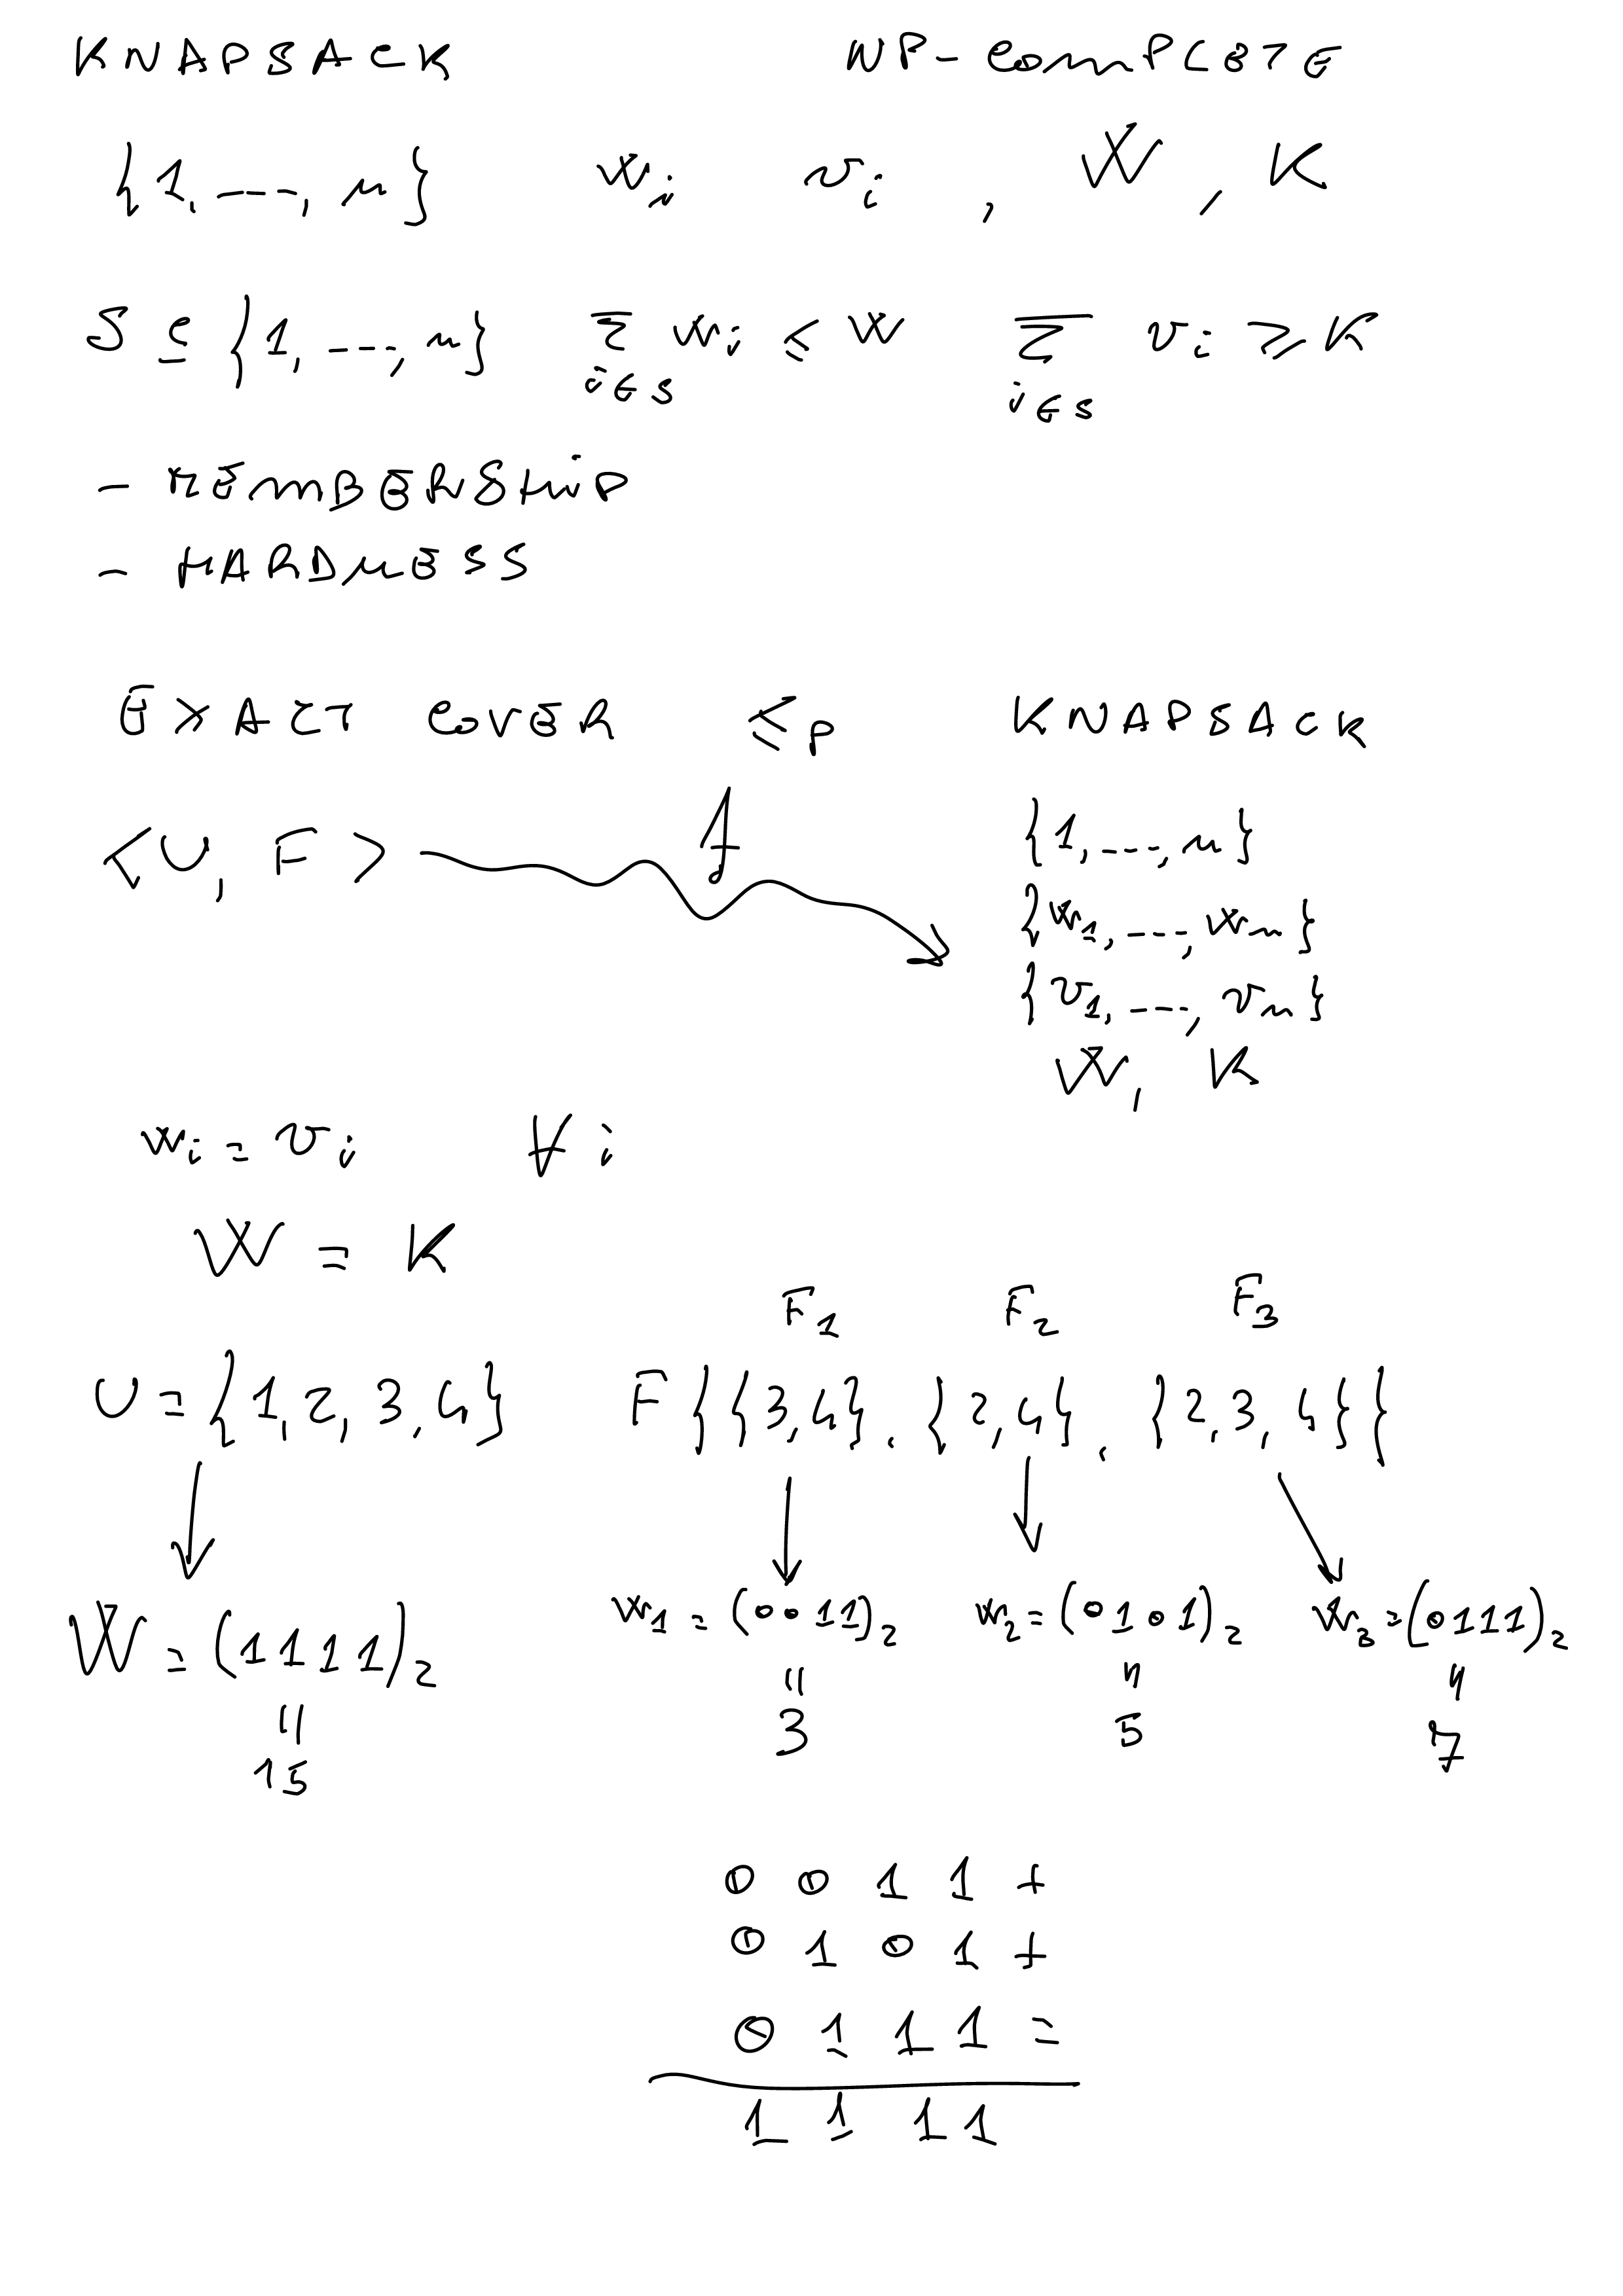 KNAPSACK NP-COMPLETE
{1, ---, n} wᵢ vᵢ , W , K
S ⊆ {1, ---, n} Σ wᵢ ≤ W Σ vᵢ ≥ K
i∈S i∈S
- MEMBERSHIP
- HARDNESS
EXACT COVER ≤p KNAPSACK
<U, F> f {1, ---, n}
{w₁, ---, wₙ}
{v₁, ---, vₙ}
W, K
wᵢ = vᵢ ∀ i
W = K
F₁ F₂ F₃
U = {1, 2, 3, 4} F {{3,4}, {2,4}, {2,3,4}}
W = (1111)₂ w₁ = (0011)₂ w₂ = (0101)₂ w₃ = (0111)₂
= = = =
15 3 5 7
0 0 1 1 +
0 1 0 1 +
0 1 1 1 =
1 1 1 1